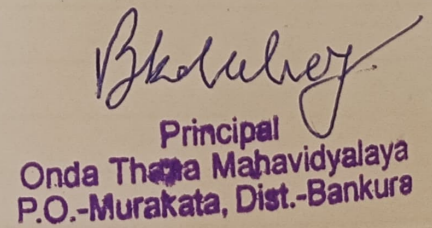 Principal
Onda Thana Mahavidyalaya
P.O.-Murakata, Dist.-Bankura